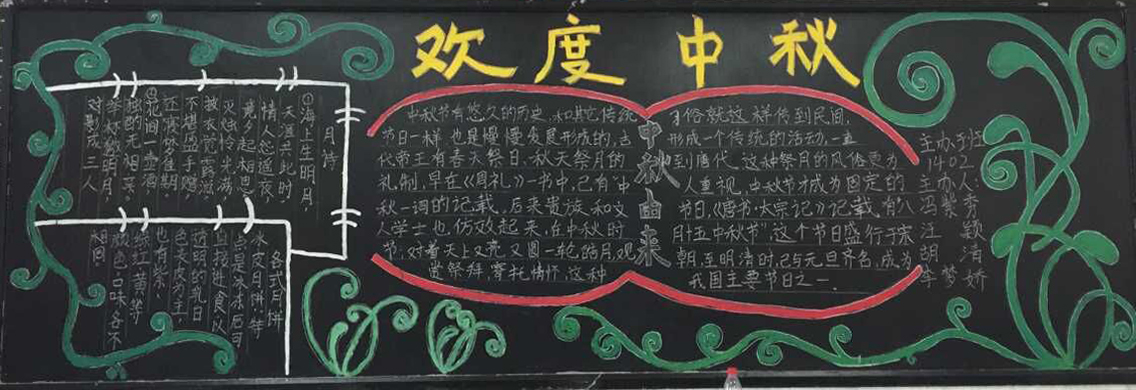 欢度中秋
月诗
①海上生明月
天涯共此时
情人怨遥夜,
竟夕起相思
灭烛怜光满
披衣觉露滋
不堪盈手赠
还寝梦佳期
②花间一壶酒
独酌无相亲。
举杯邀明月
对影成三人
各式月饼
冰皮月饼:特
点是 冰冻后可
直接进食以
透明的乳白
色表皮为主
也有紫、
绿红黄等
颜色,口味各不
相同
中秋由来
中秋节有悠久的历史,和其它传统
节日一样,也是慢慢发展形成的,古
代帝王有春天祭日,秋天祭月的
礼制,早在《周礼》一书中,已有"中
秋一词的记载,后来贵族和文
人学士也仿效起来,在中秋时
节,对着天上又亮又圆一轮皓月,观
赏祭拜,寄托情怀,这种
习俗就这样传到民间,
形成一个传统的活动,一直
到唐代,这种祭月的风俗更为
人重视,中秋节才成为固定的
节日,《唐书·太宗记》记载,有"八
月十五中秋节",这个节日盛行于宋
朝,至明清时,已与元旦齐名,成为
我国主要节日之一。
主办班
1402
主办人:
冯紫秀
汪颖
胡清
李梦娇